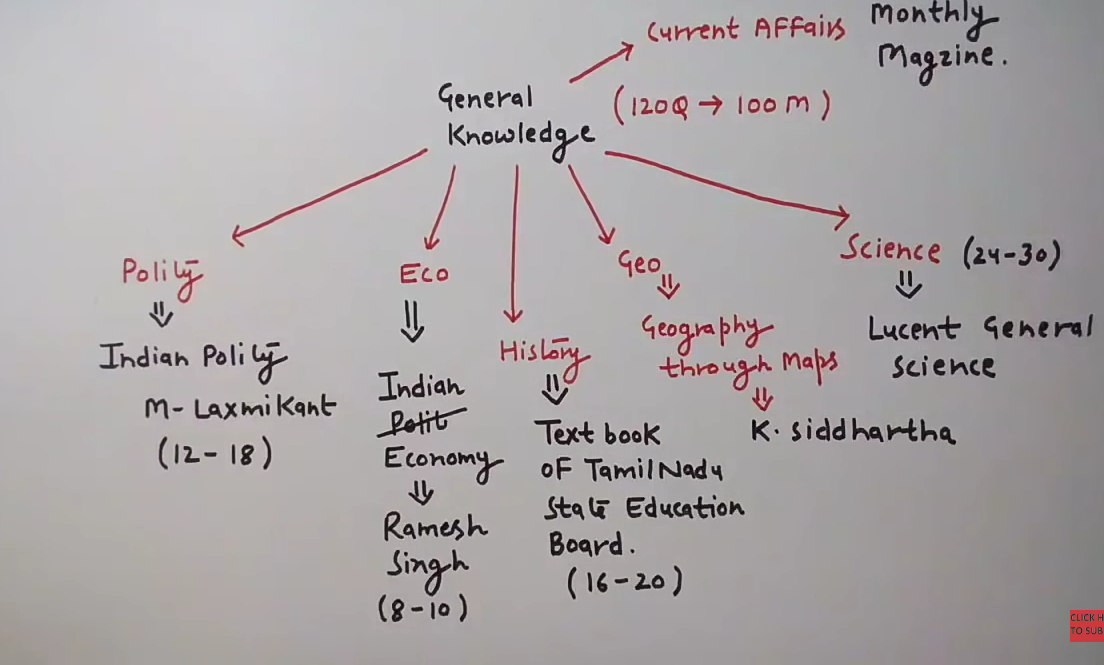 Current Affairs
Monthly
Magzine.
General
Knowledge
(120Q → 100 M)
Polity
⇓
Indian Polity
M- Laxmikant
(12-18)
Eco
⇓
Indian
Polit
Economy
⇓
Ramesh
Singh
(8-10)
History
⇓
Text book
of Tamil Nadu
State Education
Board.
(16-20)
Geo
⇓
Geography
through Maps
⇓
K. siddhartha
Science (24-30)
⇓
Lucent General
science
CLICK H
TO SUB